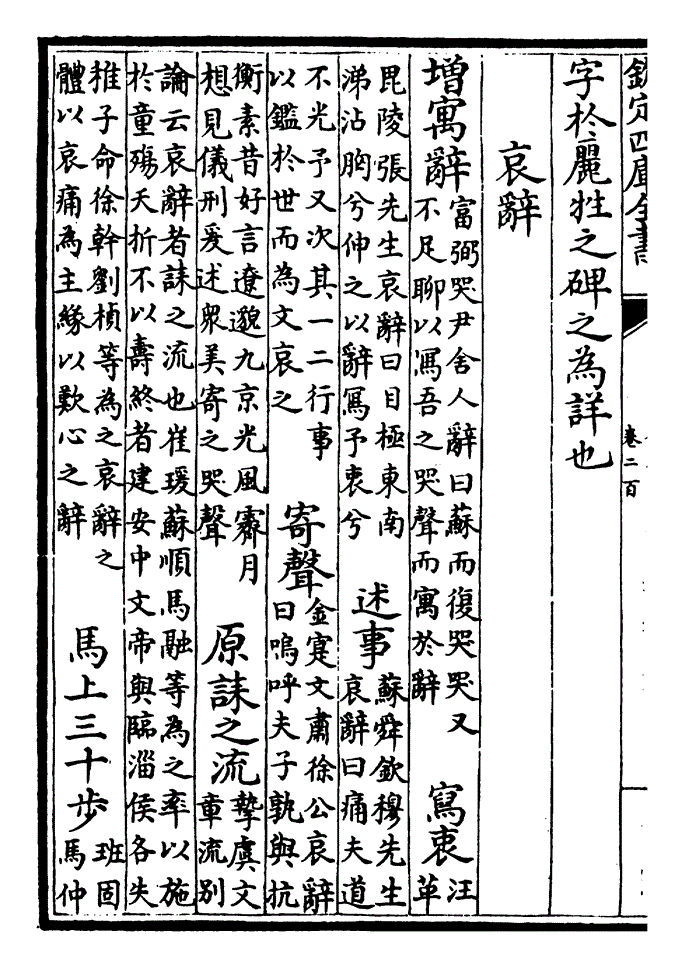 欽定四庫全書
卷二百
字於麗牲之碑之為詳也
哀辭
増寓辭
富弼哭尹舍人辭曰蘇而復哭哭又
不足聊以寫吾之哭聲而寓於辭
寫衷
汪
革
毘陵張先生哀辭曰目極東南
涕沾胸兮仲之以辭寫予衷兮
述事
蘇舜欽穆先生
哀辭曰痛夫道
不光予又次其一二行事
以鑑於世而為文哀之
寄聲
金寔文肅徐公哀辭
曰嗚呼夫子孰與抗
衡素昔好言遼邈九京光風霽月
想見儀刑爰述衆美寄之哭聲
原誄之流
摯虞文
章流別
論云哀辭者誄之流也崔瑗蘇順馬融等為之率以施
於童殤夭折不以壽終者建安中文帝與臨淄侯各失
稚子命徐幹劉楨等為之哀辭之
體以哀痛為主縁以歎心之辭
馬上三十步
班固
馬仲